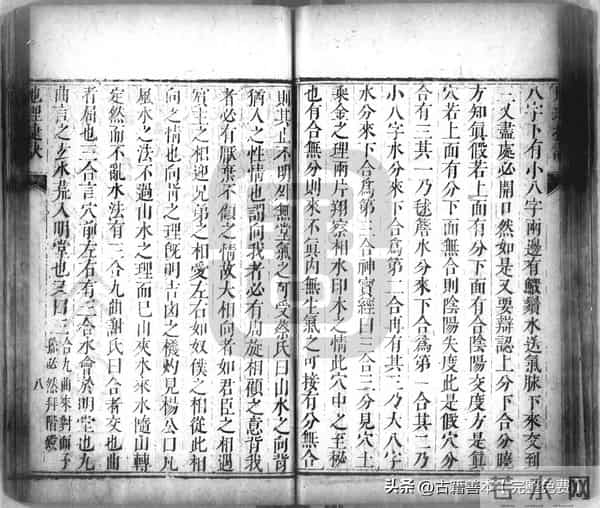 八字下有小八字兩邊有鰕鬚水送氣脉下來交到
二叉盡處必開口然如是又要辯認上分下合分曉
方知眞假若上面有分下面有合陰陽交度方是眞
穴若上面有分下面無合則陰陽失度此是假穴分
合有三其一乃毬簷水分來下合爲第一合其二乃
小八字水分來下合爲第二合再有其三乃大八字
水分來下合爲第三合神寶經曰三合三分見穴土
乘金之理兩片翔察相水印木之情此穴中之至秘
也有合無分則來不眞內無生氣之可接有分無合
則其止不明外無堂氣之可受蔡氏曰山水之向背
猶人之性情也謂向我者必有周旋相顧之意背我
者必有厭棄不顧之情故大相向者如君臣之相遇
賓主之相迎兄弟之相愛左右如奴僕之相從此相
向之情也向背之理旣明吉凶之機灼見楊公曰凡
風水之法不過山水之理而已山來水來水隨山轉
定然而不亂水法有三合九曲謝氏曰合者交也曲
者屈也三合言穴前左右有三合水會於明堂也九
曲言之玄水蕩入明堂也又曰三合九曲來對面子
孫必然拜階
地理
八
头条 @古籍善本十完整免费